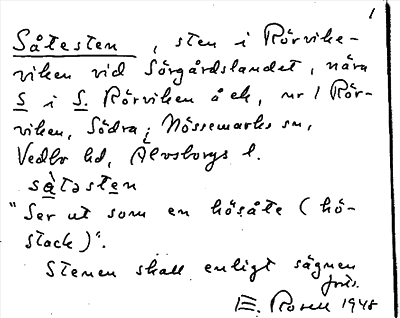 1
Såtesten, sten i Rörvike-
viken vid Sörgårdslandet, nära
S i S. Rörviken å ek, nr 1 Rör-
viken, Södra; Nössemarks sn,
Vedbo hd, Älvsborgs l.
såtəsten
"Ser ut som en hösåte (hö-
stack)".
Stenen skall enligt sägnen
forts.
E. Rosell 1948